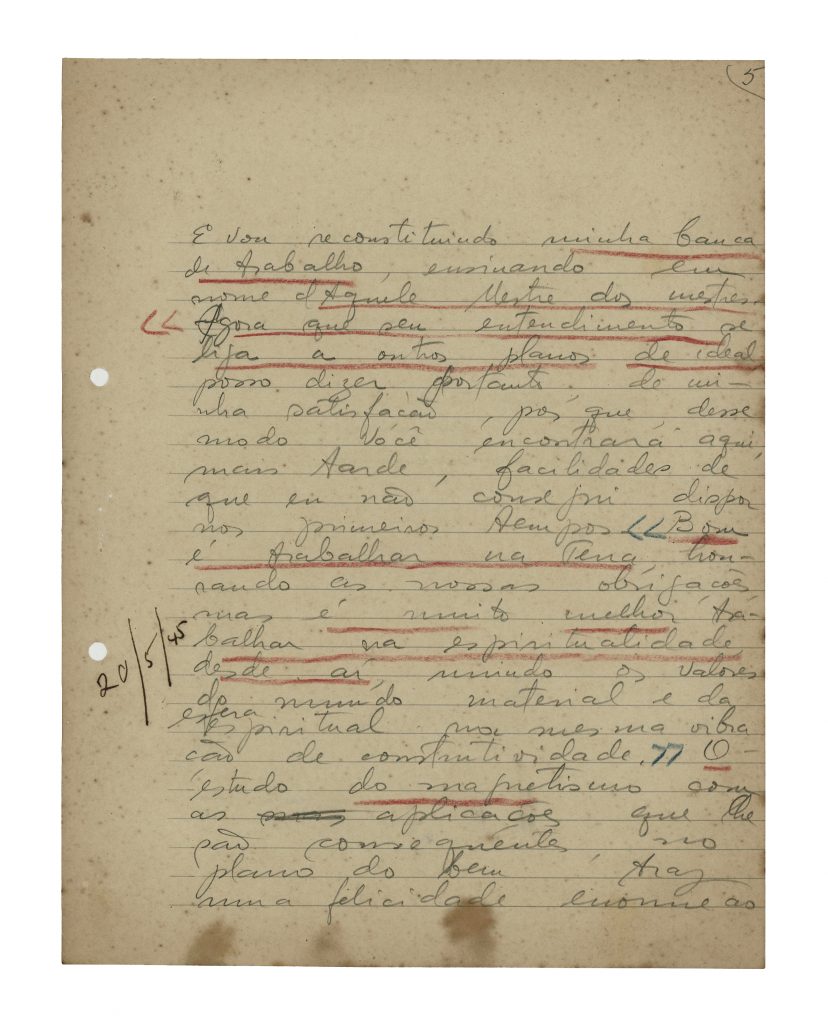 5
E vou reconstituindo minha banca
de trabalho, ensinando em
nome d'Aquele Mestre dos mestres.
<< Agora que seu entendimento se
liga a outros planos de ideal
posso dizer portanto, de mi-
nha satisfação, pos que, desse
modo você encontrará aqui,
mais tarde, facilidades de
que eu não consegui dispor
nos primeiros tempos << Bom
é trabalhar na Terra hon-
rando as nossas obrigações
mas é muito melhor tra-
balhar na espiritualidade,
desde aí, unindo os valores
do mundo material e da
esfera
espiritual na mesma vibra
ção de construtividade. >> O-
estudo do magnetismo com
as aplicações que lhe
são consequentes, no
plano do bem, traz
uma felicidade enorme ao
20/5/45